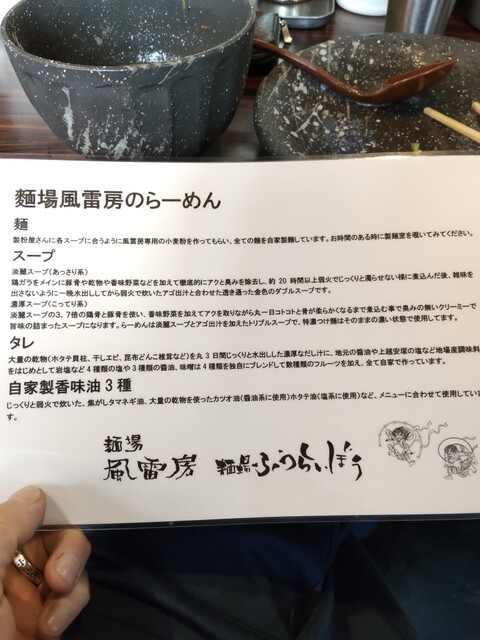 麵場風雷房のらーめん
麺
製粉屋さんに各スープに合うように風雷房専用の小麦粉を作ってもらい、全ての麺を自家製麺しています。お時間のある時に製麺室を覗いてみてください。
スープ
淡麗スープ(あっさり系)
鶏ガラをメインに豚骨や乾物や香味野菜などを加えて徹底的にアクと臭みを除去し、約 20 時間以上弱火でじっくりと濁らせない様に煮込んだ後、雑味を
出さないように一晩水出ししてから弱火で炊いたアゴ出汁と合わせた透き通った金色のダブルスープです。
濃厚スープ(こってり系)
淡麗スープの3、7倍の鶏骨と豚骨を使い、香味野菜を加えてアクを取りながら丸一日コトコトと骨が柔らかくなるまで煮込む事で臭みの無いクリーミーで
旨味の詰まったスープになります。らーめんは淡麗スープとアゴ出汁を加えたトリプルスープで、特濃つけ麺はそのままの濃い状態で使用してます。
タレ
大量の乾物(ホタテ貝柱、干しエビ、昆布どんこ椎茸など)を丸3日間じっくりと水出しした濃厚なだし汁に、地元の醤油や上越安塚の塩など地場産調味料
をはじめとして岩塩など4種類の塩や3種類の醤油、味噌は4種類を独自にブレンドして数種類のフルーツを加え、全て自家で作っています。
自家製香味油3種
じっくりと弱火で炊いた、焦がしタマネギ油、大量の乾物を使ったカツオ油(醤油系に使用)ホタテ油(塩系に使用)など、メニューに合わせて使用していま
す。
麵場
風雷房 麵場ふうらいぼう